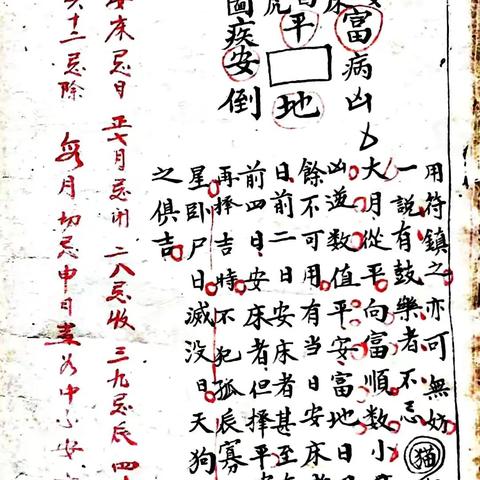 用符鎮之亦可無妨
一說有鼓樂者不忌
猫
大月從平向富順數小
凶逆數值平安富地日
餘不可用有當日安床
日前二日安床者甚至
前四日安床者但擇平
再擇吉時不犯孤辰寡
星卧尸日滅没日天狗
之俱吉
床
富病凶
平 地
圖疾安倒
床忌日 正七月忌閉 二八忌收 三九忌辰 四
六十二忌除 每月切忌申日